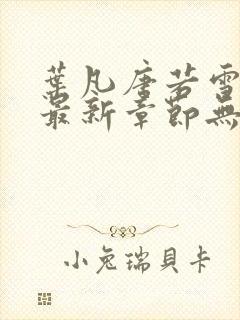 葉凡唐若雪
最新章節無
小兔瑞貝卡